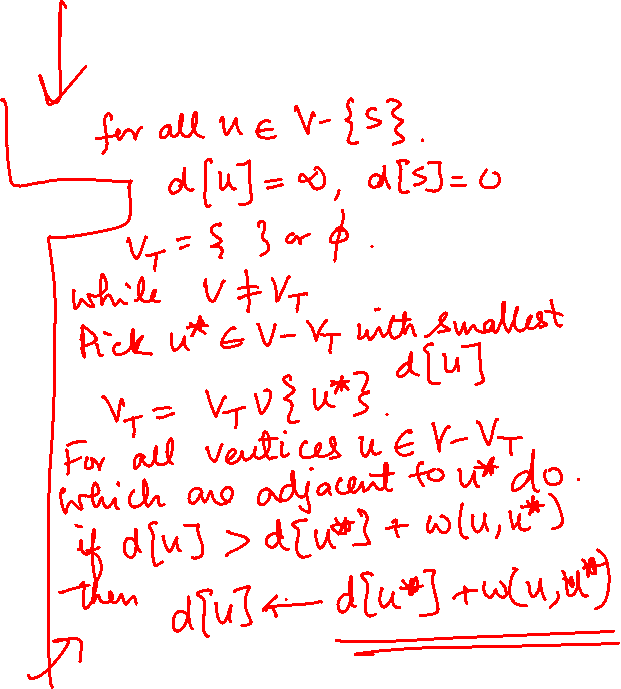 for all u ∈ V-{s}.
d[u] = ∞, d[s] = 0
V_T = { } or ϕ.
while V ≠ V_T
Pick u* ∈ V-V_T with smallest
d[u]
V_T = V_T ∪ { u* }.
For all vertices u ∈ V-V_T
which are adjacent to u* do.
if d[u] > d[u*] + w(u, u*)
then d[u] ← d[u*] + w(u, u*)